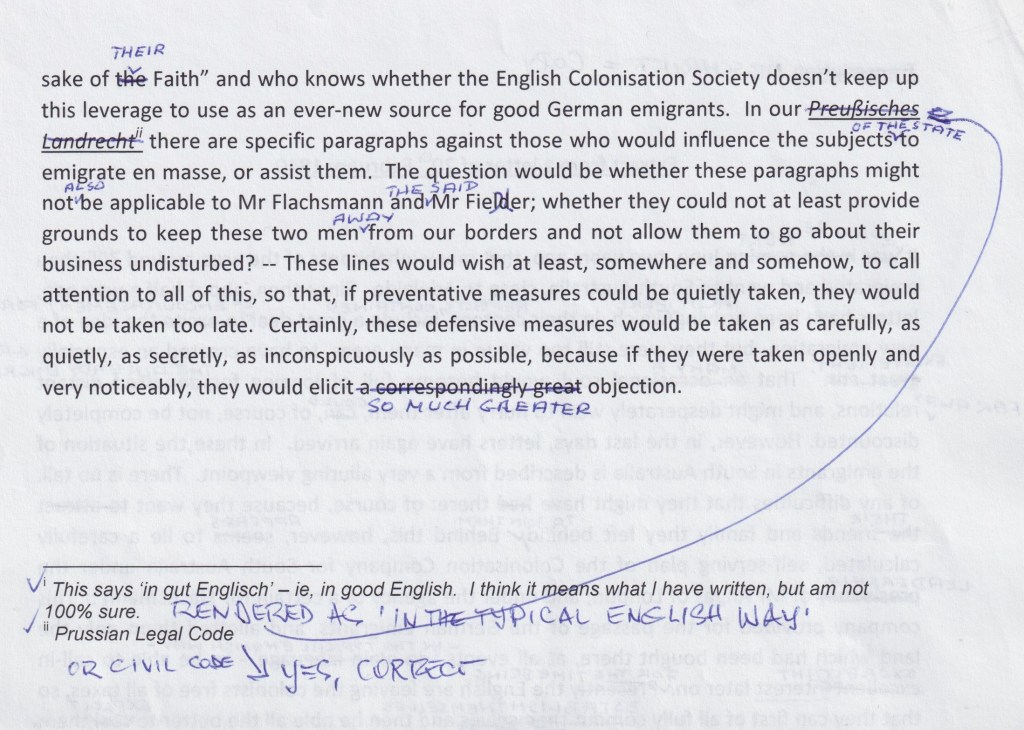 THEIR
sake of the Faith” and who knows whether the English Colonisation Society doesn’t keep up
this leverage to use as an ever-new source for good German emigrants.  In our Preußisches
OF THE STATE
Landrecht ii there are specific paragraphs against those who would influence the subjects to
emigrate en masse, or assist them.  The question would be whether these paragraphs might
ALSO THE SAID
not be applicable to Mr Flachsmann and Mr Fielder; whether they could not at least provide
AWAY
grounds to keep these two men from our borders and not allow them to go about their
business undisturbed? -- These lines would wish at least, somewhere and somehow, to call
attention to all of this, so that, if preventative measures could be quietly taken, they would
not be taken too late.  Certainly, these defensive measures would be taken as carefully, as
quietly, as secretly, as inconspicuously as possible, because if they were taken openly and
very noticeably, they would elicit a correspondingly great objection.
SO MUCH GREATER
i This says ‘in gut Englisch’ – ie, in good English.  I think it means what I have written, but am not
100% sure. RENDERED AS 'IN THE TYPICAL ENGLISH WAY'
ii Prussian Legal Code
OR CIVIL CODE YES, CORRECT